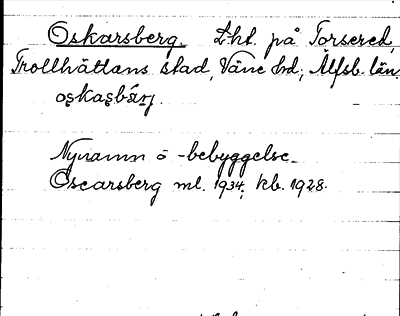 Oskarsberg. Lht. på Torsered,
Trollhättans stad, Väne hd; Älfsb. län.
oskasbärj.
Nynamn o -bebyggelse.
Oscarsberg ml. 1934; kb. 1928.